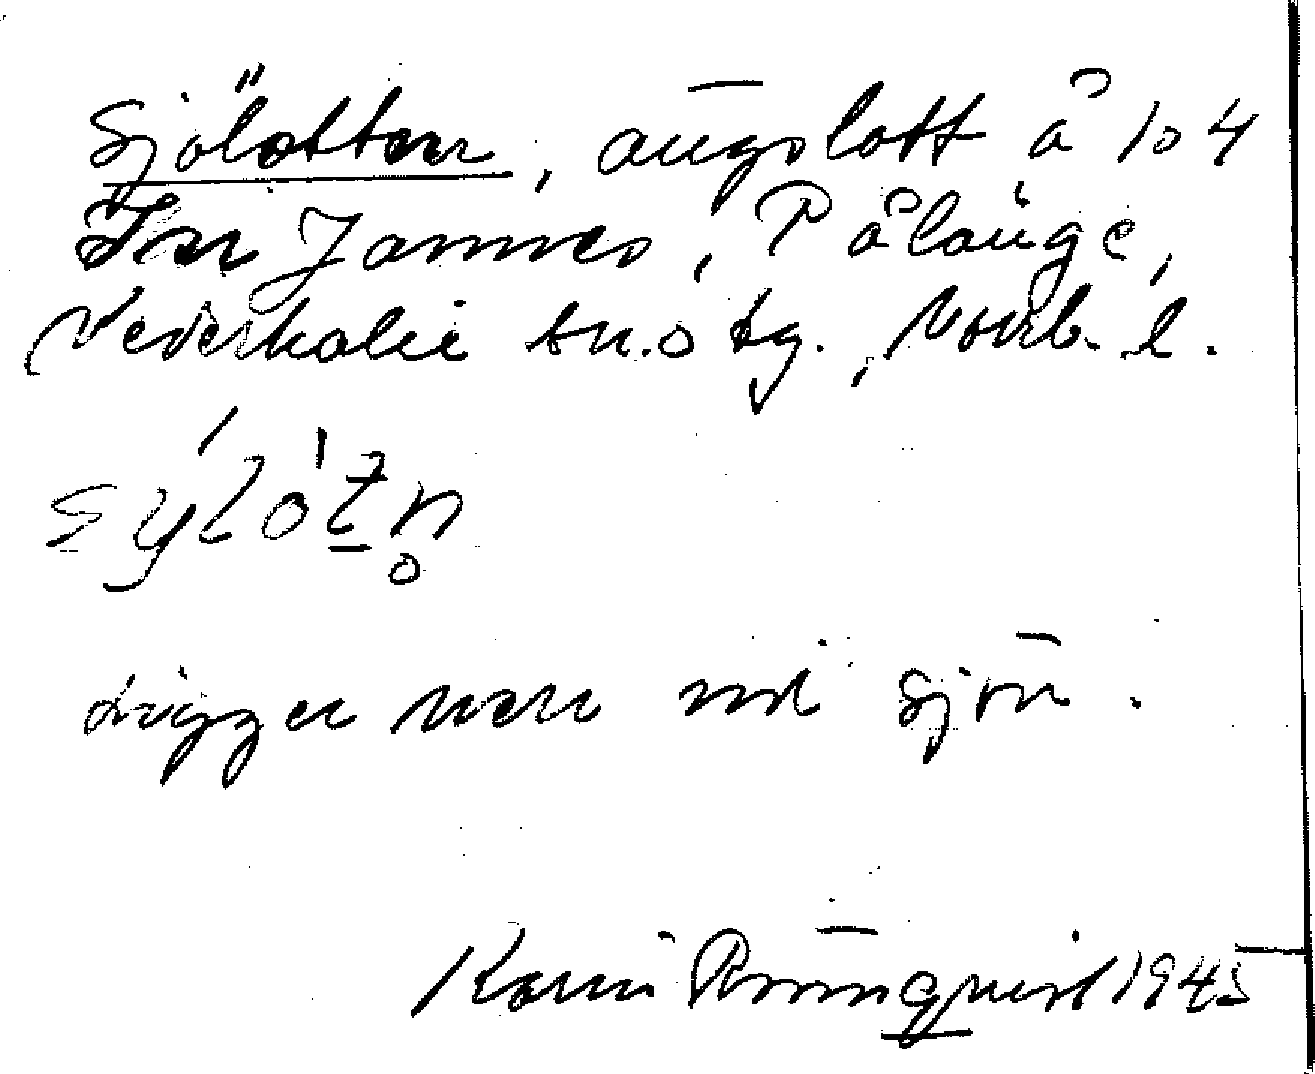 Sjölotten, ängslott å 104
Jannes, Pålänge,
Nederkalix sn. o tg., Norrb. l.
Ligger nere vid sjön.
Karin Rönnqvist 1945